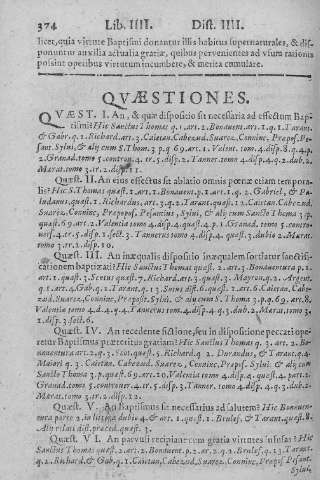 374 Lib. IIII. Dist. IIII.
licet, quia virtute Baptismi donantur illis habitus supernaturales, & dis-
ponuntur auxilia actualia gratiæ, quibus pervenientes ad usum rationis
possint operibus virtutum incumbere, & merita cumulare.
QVÆSTIONES.
QVÆST. I. An, & quæ dispositio sit necessaria ad effectum Bap-
tismi? Hic Sanctus Thomas q. 1. art. 2. Bonavent. art. 1. q. 1. Tarant.
& Gabr. q. 1. Richard. art. 3. Caietan. Cabezud. Suarez. Coninc, Propos. Pe-
sant. Sylvi, & alij cum S. Thom. 3 p. q 69. art. 1. Valent. tom. 4. disp. 4. q. 4. p.
2. Granad. tomo 5. contron. 4. tr. 3. disp. 2. Tanner. tomo 4. disp. 4. q. 2. dub. 2.
Marat. tomo 3. tr. 2. disp. 11.
Quæst. II. An eius effectus sit ablatio omnis pœnæ etiam tempora-
lis? Hic S. Thomas quæst. 1. art. 1. Bonavent. p. 1. art. 1. q. 2. Gabriel, & Pa-
ludanus. quæst. 1. Richardus, art. 3. q. 2. Tarant. quæst. 1. 2. Caietan. Cabezud.
Suarez. Coninc, Propopos, Pesantius, Sylvi, & alij cum Sancto Thoma 3 p.
quæst. 69. art. 2. Valentia tomo 4. disp. 4. quæst. 4. p. 1. Granad. tomo 5. contro-
vers. 4. tr. 5. disp. 2. sect. 3. Tannerus tomo 4. disp. 4. quæst. 3. dubio 2. Marat.
tomo 3. tr. 2. disp. 10.
Quæst. III. An inæqualis dispositio inæqualem sortiatur sanctifi-
cationem baptizati? Hic Sanctus Thomas quæst. 2. art. 3. Bonaventura p. 1.
art. 1. quæst. 3. Scotus quæst. 7. Richard. art. 3. quæst. 3. Mayron. q. 2. Argent.
q. 1. art. 4. Gab. q. 2. Tarant. q. 13. Sotus dist. quæst. 2. art. 6. Caietan. Cabe-
zud. Suarez. Coninc, Propos. Sylvi. & alij cum S. Thoma 3. p. q. 69. art. 8.
Valentia tomo 4. d. 4. q. 4. Tannerus tom. 4. disp. 4. q. 3. dub. 2. Marat. tomo 3.
2. disp. 3. sect. 6.
Quæst. IV. An recedente fictione, seu in dispositione peccati ope-
retur Baptismus præteritus gratiam? Hic Sanctus Thomas q. 3. art. 2. Bo-
naventura art. 2. q. 3. Scot. quæst. 5. Richard. q. 2. Durandus, & Tarant. q. 4.
Maior q. 3. Caietan. Cabezud. Suarez, Coninc, Propos. Sylvi. & alij cum
Sancto Thoma 3 p. quæst. 69. art. 10. Valentia tomo 4. disp. 4. quæst. 4. part. 2.
Granad. tomo 5. controver. 4. tr. 3. disp. 3. Tanner. tomo 4. disp. 4. q. 3. dub. 2.
Marat. tomo 3. tr. 2. disp. 12.
Quæst. V. An Baptismus sit necessarius ad salutem? Hic Bonaven-
tura parte 2. in littera dubio 4. & art. 1. quæst. 1. Brulef. & Tarant. quæst. 1.
An alias dist. præced. quæst. 3.
Quæst. VI. An parvuli recipiant cum gratia virtutes infusas? Hic
Sanctus Thomas quæst. 2. art. 2. Bonavent. p. 2. ar. 2. q. 2. Brulef. q. 13. Tarant.
q. 2. Richard. & Gab. q. 1. Caietan, Cabezud, Suarez, Coninc, Propos Pesant.
Sylvi.